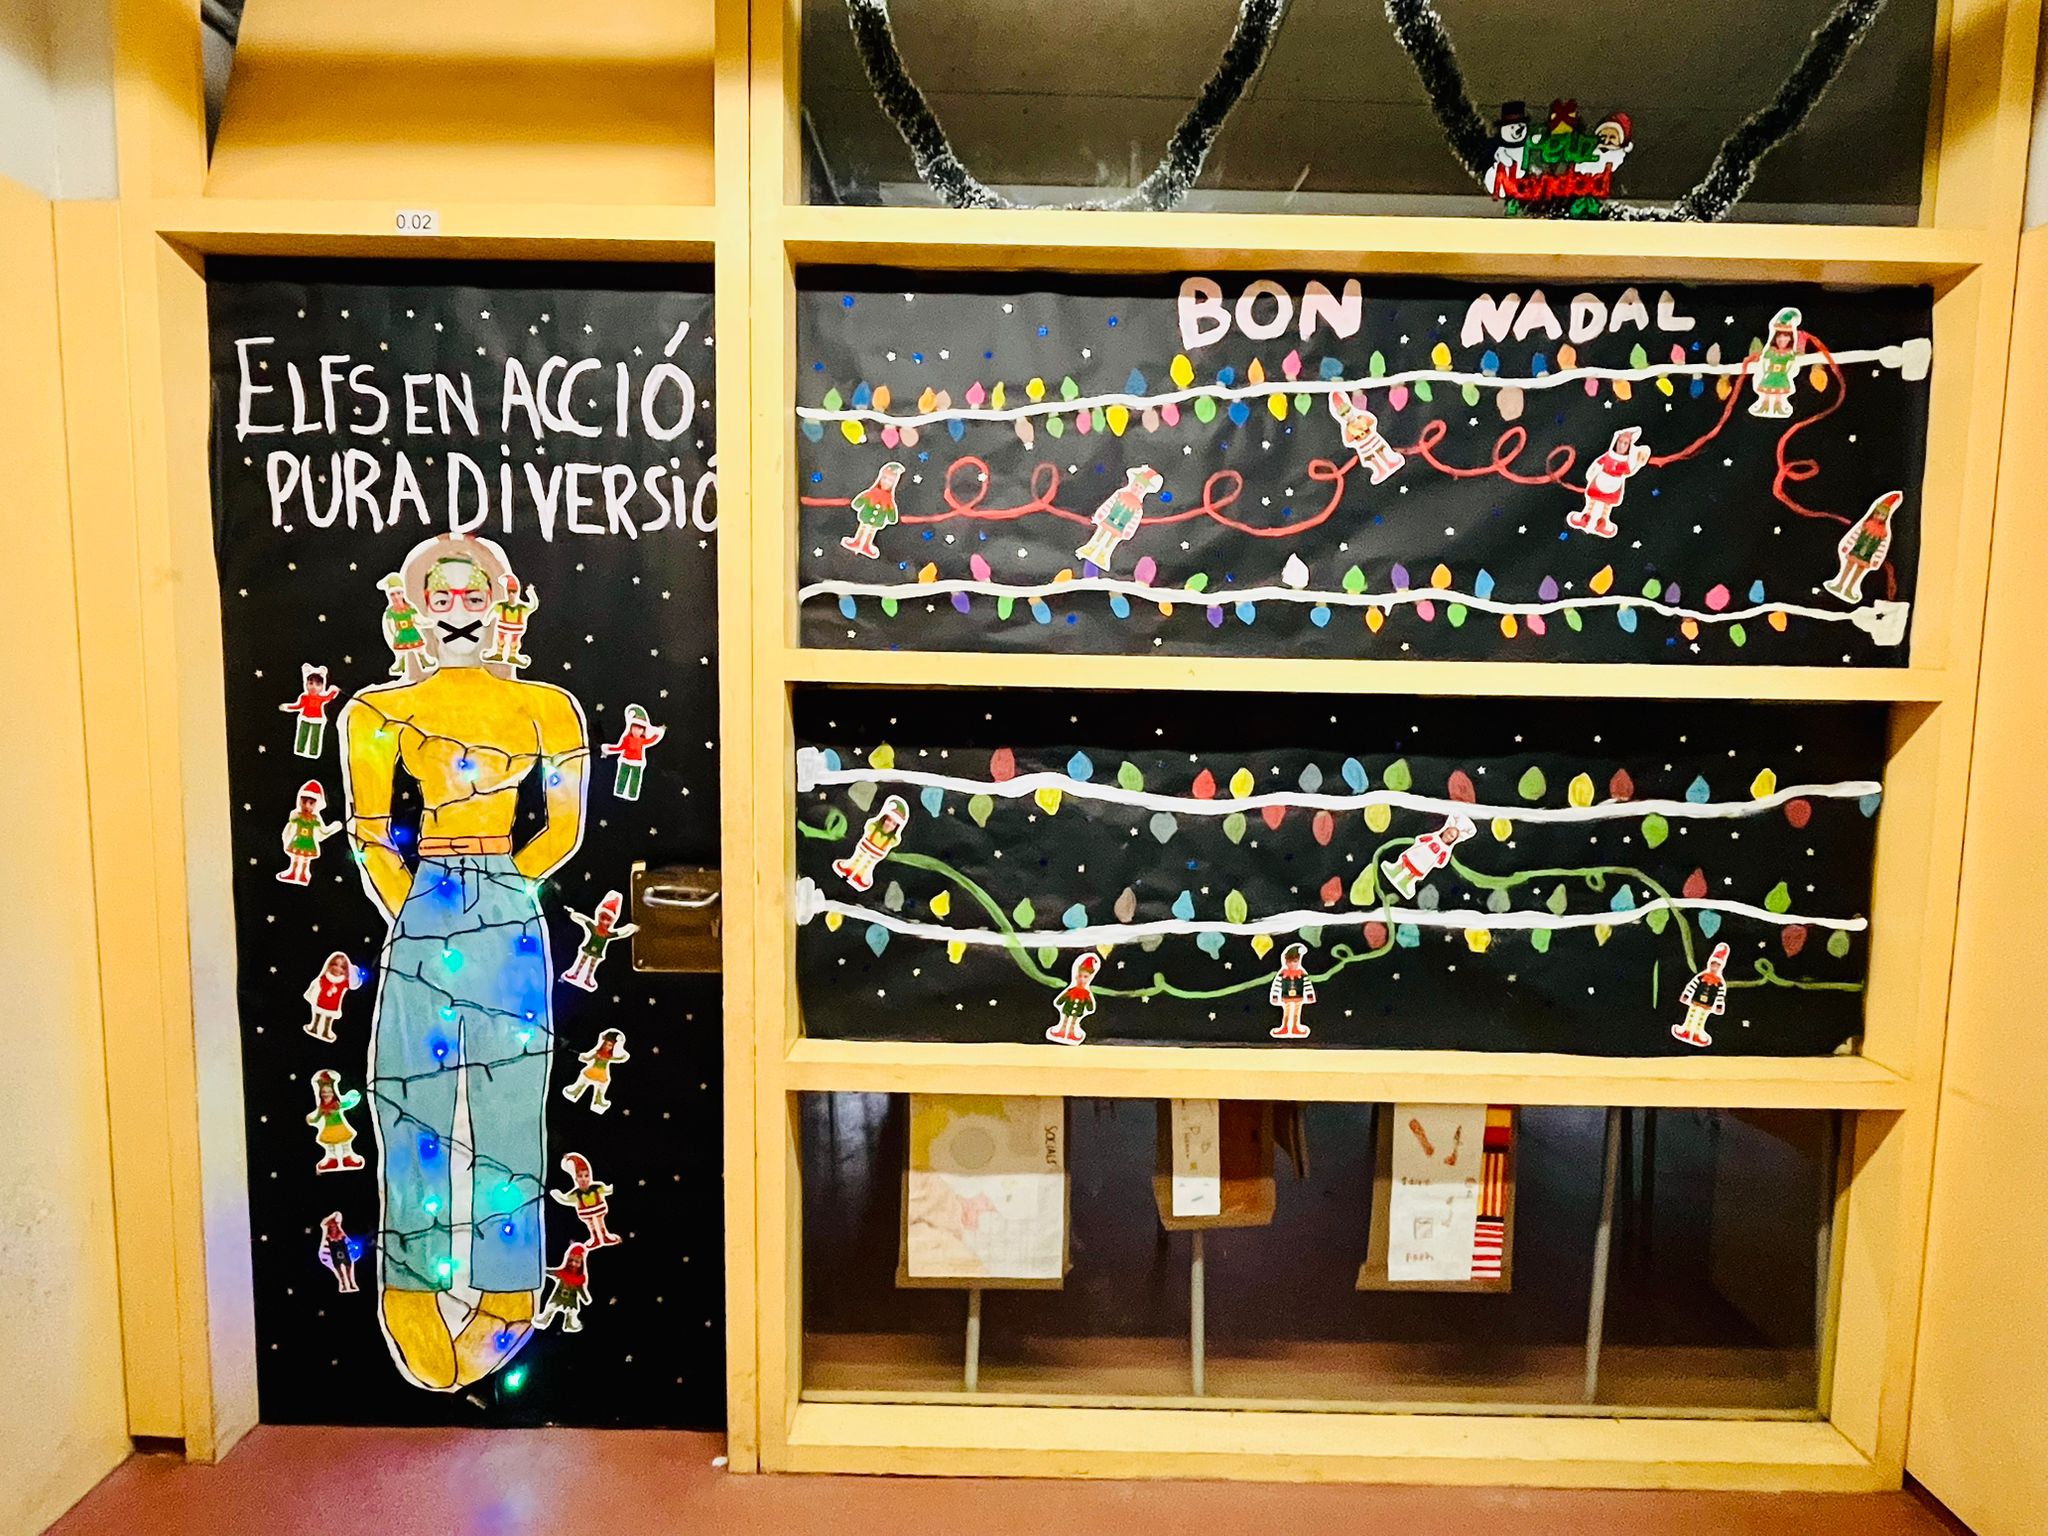 0.02
ELFS EN ACCIÓ
PURA DIVERSIÓ
Feliz
Navidad
BON NADAL
SOCIALS